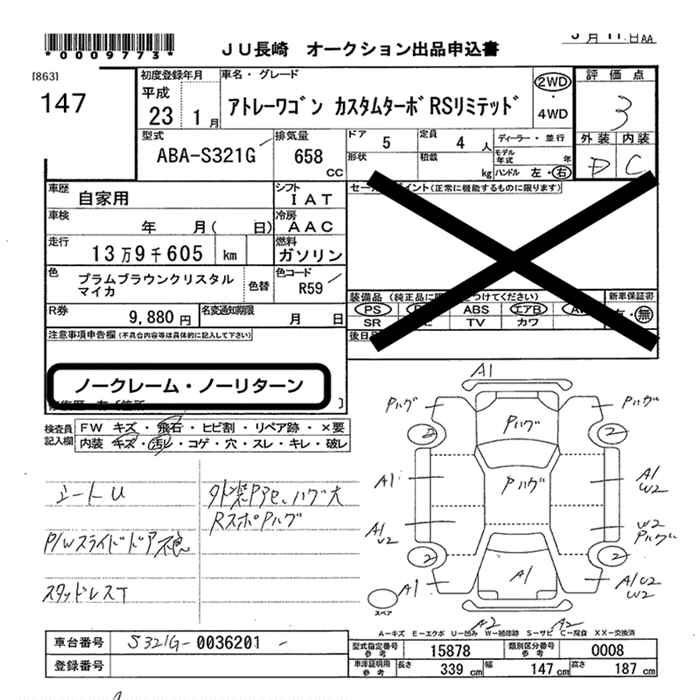 *0009773*
JU長崎 オークション出品申込書
月 11日AA
[863]
147
初度登録年月
平成
23 1月
車名・グレード
アトレーワゴン カスタムターボRSリミテッド
2WD
・
4WD
評価点
3
外装 内装
D C
型式
ABA-S321G
排気量
658
CC
ドア 5
定員 4 人
形状
積載 kg
ディーラー・並行
モデル年式 年
ハンドル 左・右
車歴
自家用
シフト
IAT
車検
年 月( 日)
冷房
AAC
走行
13万9千605 km
燃料
ガソリン
色
プラムブラウンクリスタル
マイカ
色替
色コード
R59
R券
9,880円
名変通知期限
月 日
セー イント(正常に機能するものに限ります)
装備品 (純正品に つけてください)
新車保証書
PS ABS エアB
SR TV カワ
・無
後日
注意事項申告欄 (不具合内容等は具体的に記入して下さい)
ノークレーム・ノーリターン
検査員
記入欄
FW キズ・飛石・ヒビ割・リペア跡・×要
内装 キズ・汚レ・コゲ・穴・スレ・キレ・破レ
シートU
P/Wスライドドア不良
スタッドレスT
外装Pアセ、ハグ大
RスポPハグ
A1
Pハグ
Pハグ
Pハグ
2
2
Pハグ
A1
A1
W2
A1
U2
W2
Pハグ
2
2
A1
A1
A1U2
W2
スペア
A2
A2
A-キズ E-エクボ U-凹み W-補修跡 S-サビ C-腐食 XX-交換済
車台番号
S321G-0036201
登録番号
型式指定番号
参考
15878
類別区分番号
参考
0008
車庫証明用
参考
長さ 339 cm
幅 147 cm
高さ 187 cm